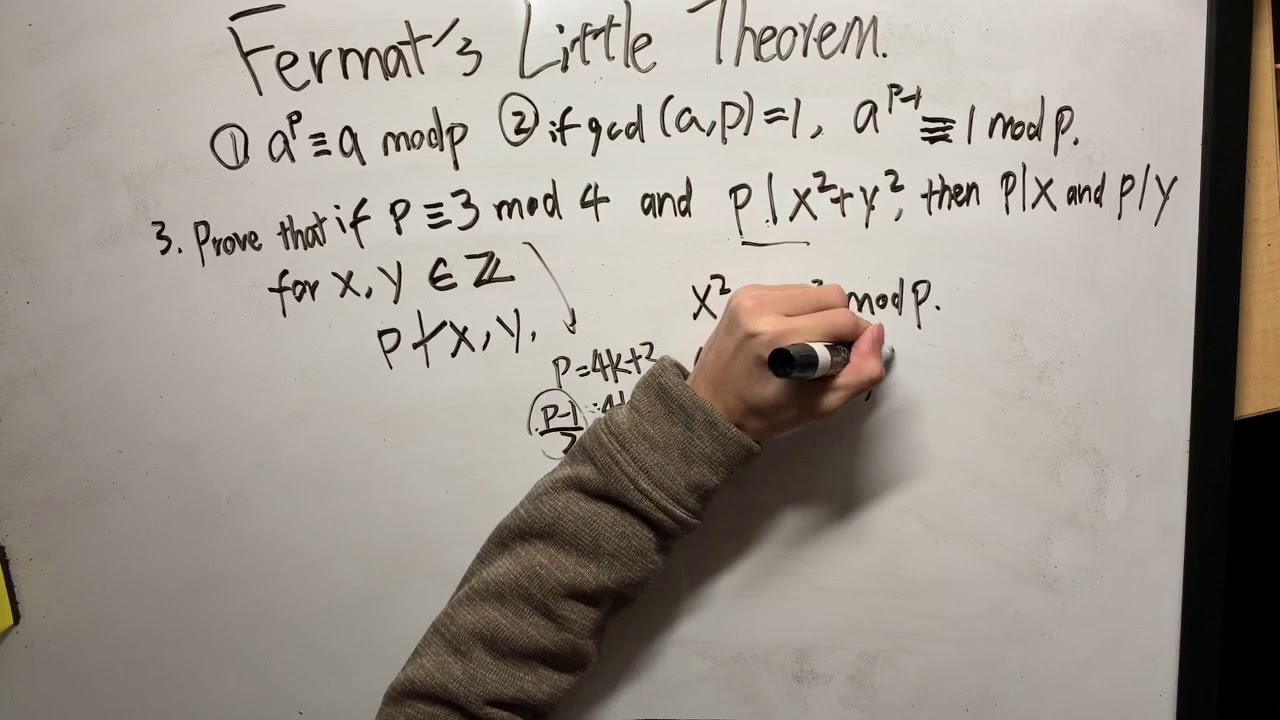 Fermat's Little Theorem.
① a^p ≡ a mod p ② if gcd (a,p)=1, a^{p-1} ≡ 1 mod p.
3. Prove that if p ≡ 3 mod 4 and p | x²+y², then p|x and p|y
for x, y ∈ ℤ
x² mod p.
p∤x, y.
P=4k+
p-1